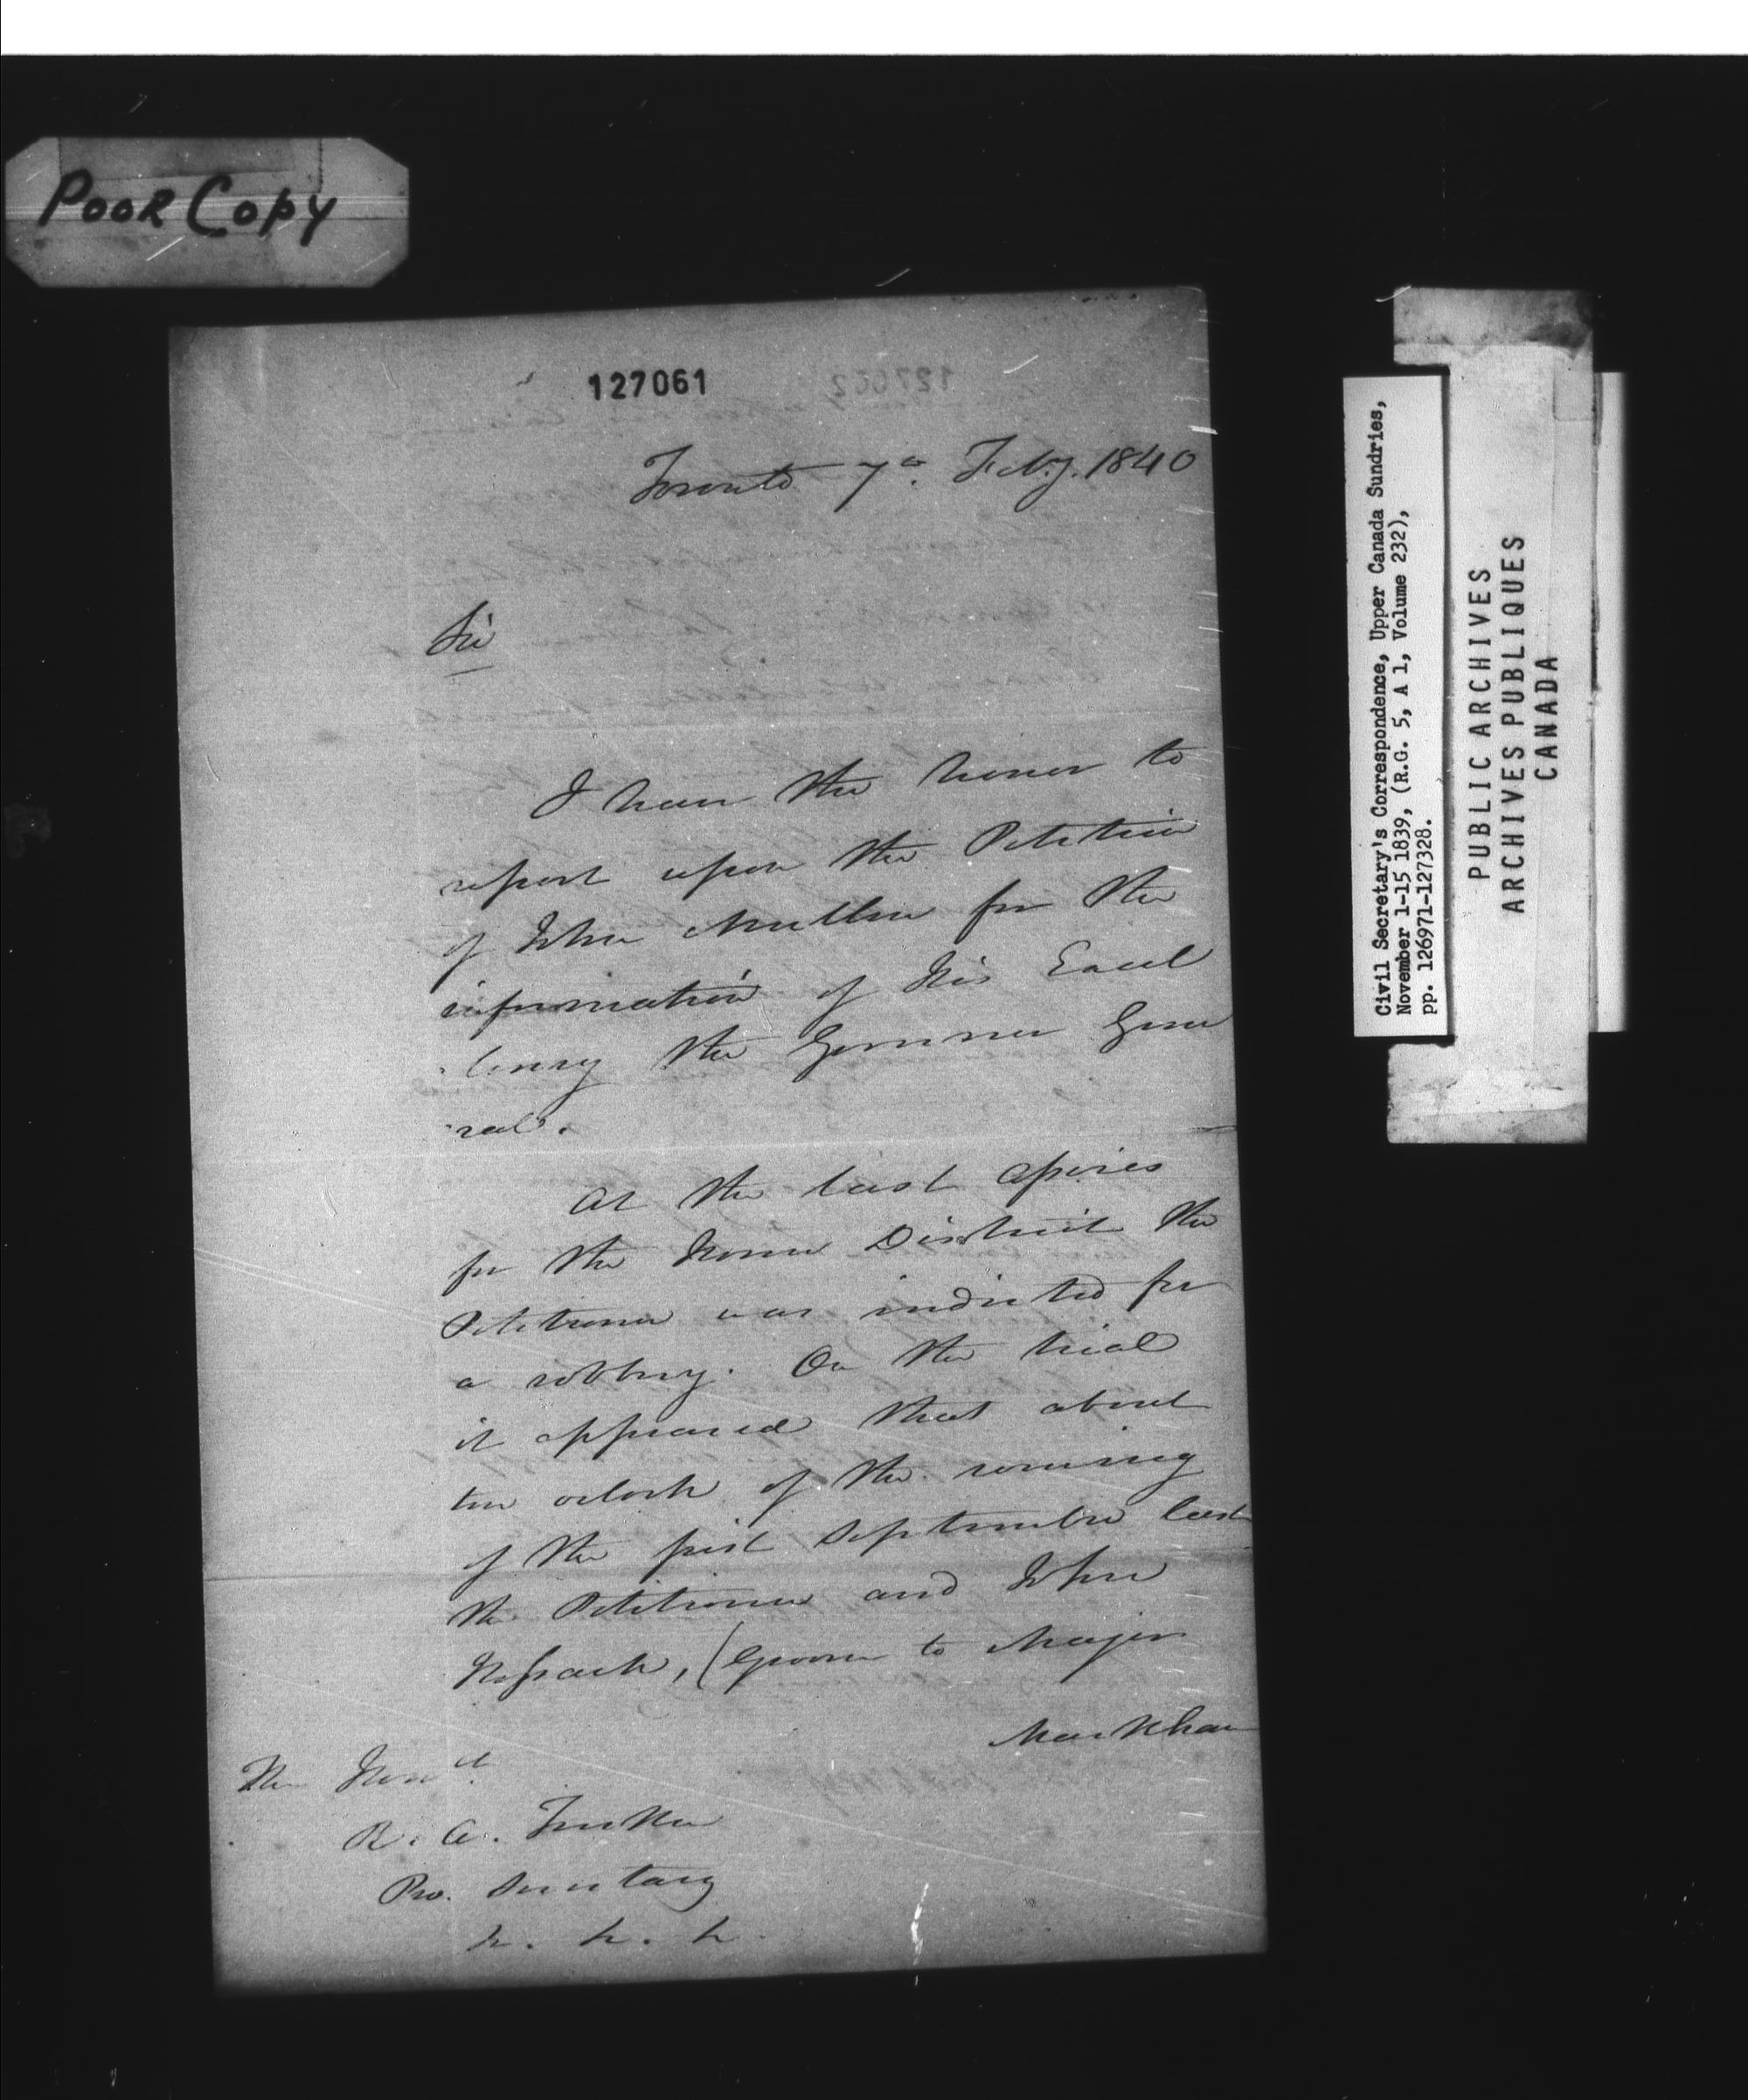 POOR COPY
127061
Toronto 7th. Feby. 1840
Sir
I have the honor to
report upon the Petition
of John Mullen for the
information of His Excel
lency the Governor Gene
ral.
At the last Assizes
for the Home District the
Petitioner was indicted for
a robbery. On the trial
it appeared that about
ten oclock of the evening
of the first September last
the Petitioner and John
(Groom to Major
Markham
The Honble
R. A. Tucker
Pro. Secretary
&. &. &.
Civil Secretary's Correspondence, Upper Canada Sundries,
November 1-15 1839, (R.G. 5, A 1, Volume 232),
pp. 126971-127328.
PUBLIC ARCHIVES
ARCHIVES PUBLIQUES
CANADA